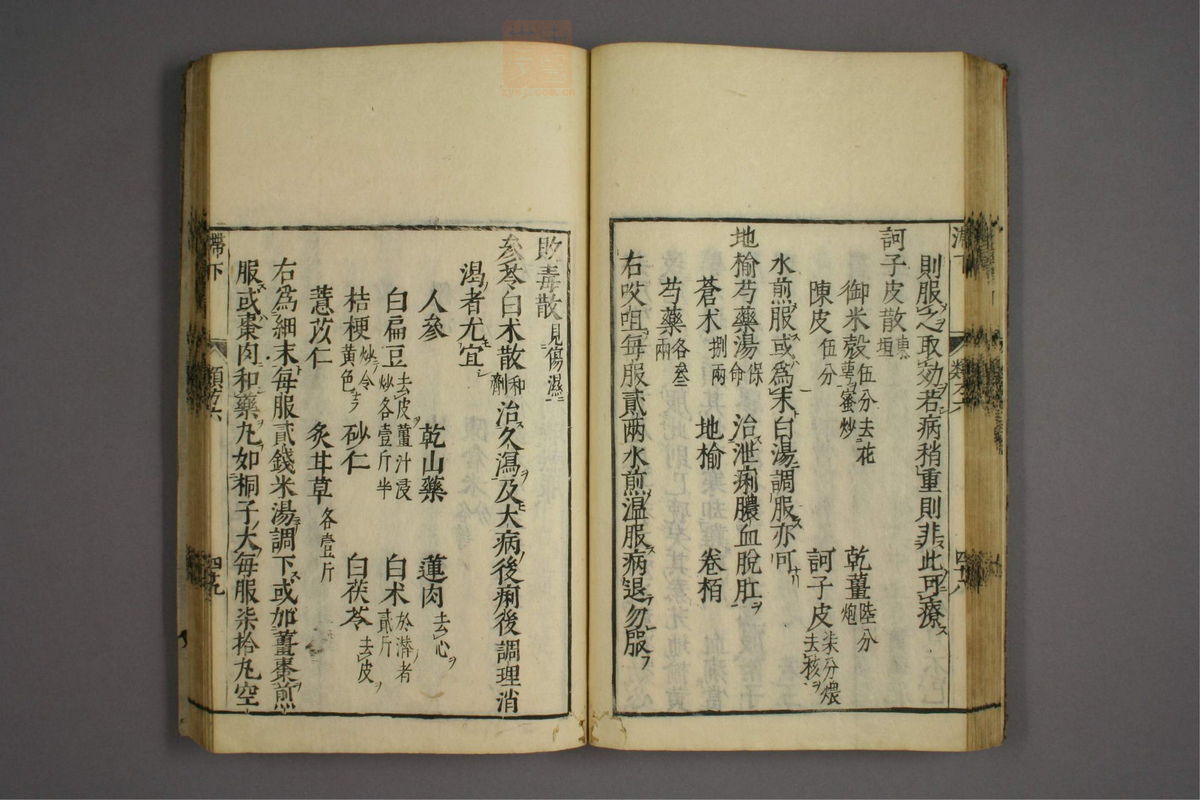 則服之取効若病稍重則非此可療
訶子皮散東垣
御米殼伍分去花萼蜜炒 乾薑陸分炮
陳皮伍分 訶子皮柒分煨去核
水煎服或爲末白湯調服亦可
地榆芍藥湯保命 治泄痢膿血脫肛
蒼朮捌兩 地榆 卷栢
芍藥各叁兩
右㕮咀每服貳兩水煎温服病退勿服
敗毒散見傷濕
參苓白朮散和劑 治久瀉及大病後痢後調理消
渴者尤宜
人參 乾山藥 蓮肉去心
白扁豆去皮薑汁浸炒各壹斤半 白朮於潛者貳斤
桔梗炒令黄色 砂仁 白茯苓去皮
薏苡仁 炙甘草各壹斤
右爲細末每服貳錢米湯調下或加薑棗煎
服或棗肉和藥丸如桐子大每服柒拾丸空
滯下 類方六 四十九